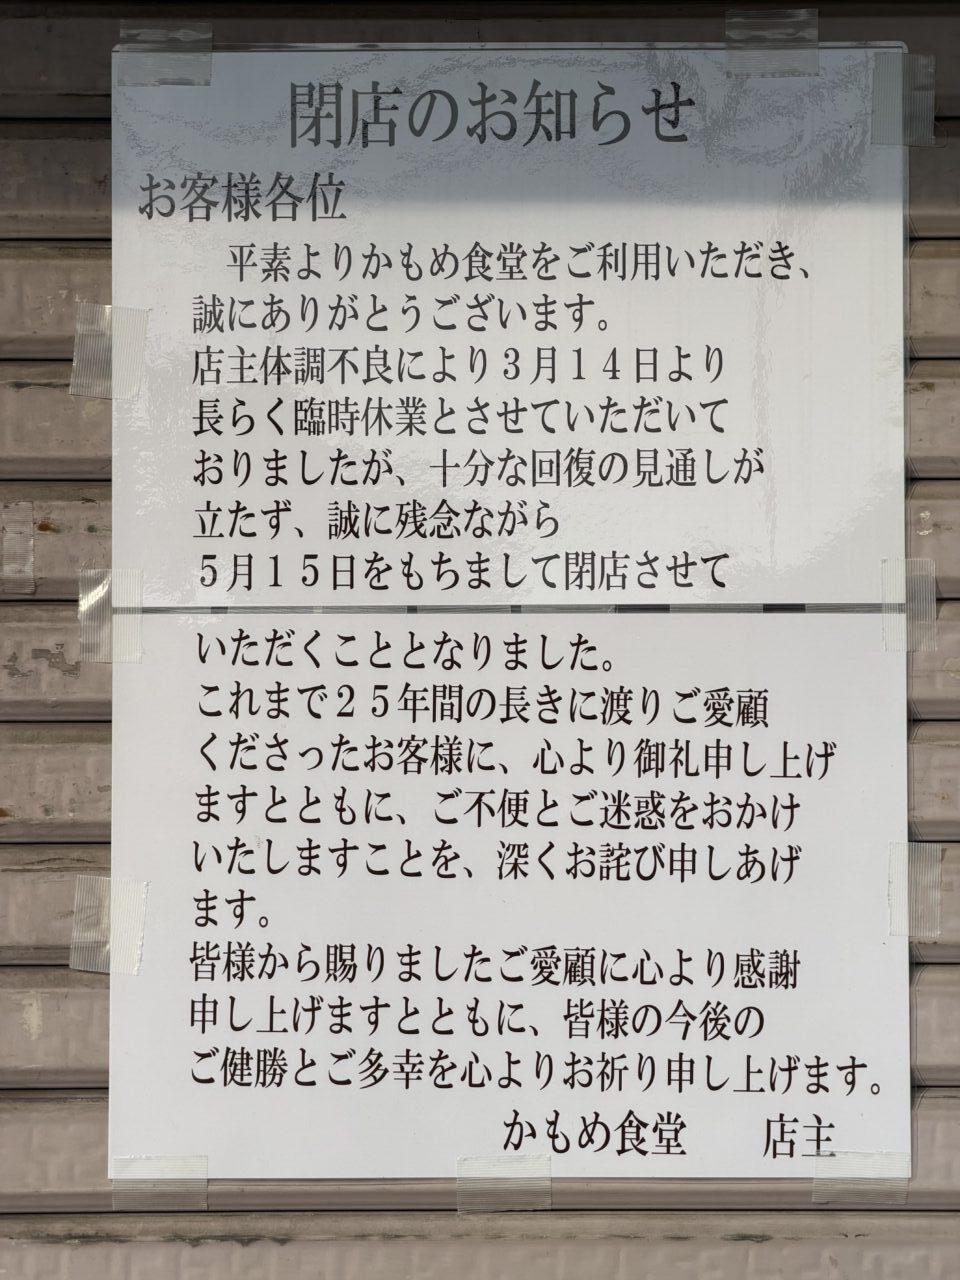 閉店のお知らせ
お客様各位
平素よりかもめ食堂をご利用いただき、
誠にありがとうございます。
店主体調不良により３月１４日より
長らく臨時休業とさせていただいて
おりましたが、十分な回復の見通しが
立たず、誠に残念ながら
５月１５日をもちまして閉店させて
いただくこととなりました。
これまで２５年間の長きに渡りご愛顧
くださったお客様に、心より御礼申し上げ
ますとともに、ご不便とご迷惑をおかけ
いたしますことを、深くお詫び申しあげ
ます。
皆様から賜りましたご愛顧に心より感謝
申し上げますとともに、皆様の今後の
ご健勝とご多幸を心よりお祈り申し上げます。
かもめ食堂　　店主